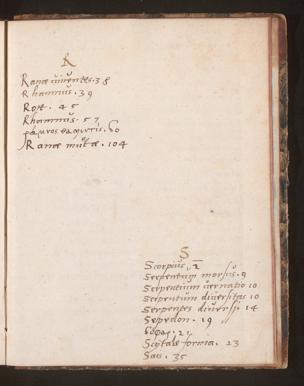 R
Ranæ viventes. 38
Rhamnus. 39
Rose. 45
Rhamnus. 57
60
Ranæ mutæ. 104
S
Scorpius, 2
Serpentum morsus. 9
Serpentium vernatio 10
Serpentum diversitas 10
Serpentes diversi. 14
Sepedon. 19
21
Scytale forma. 23
Sas. 35